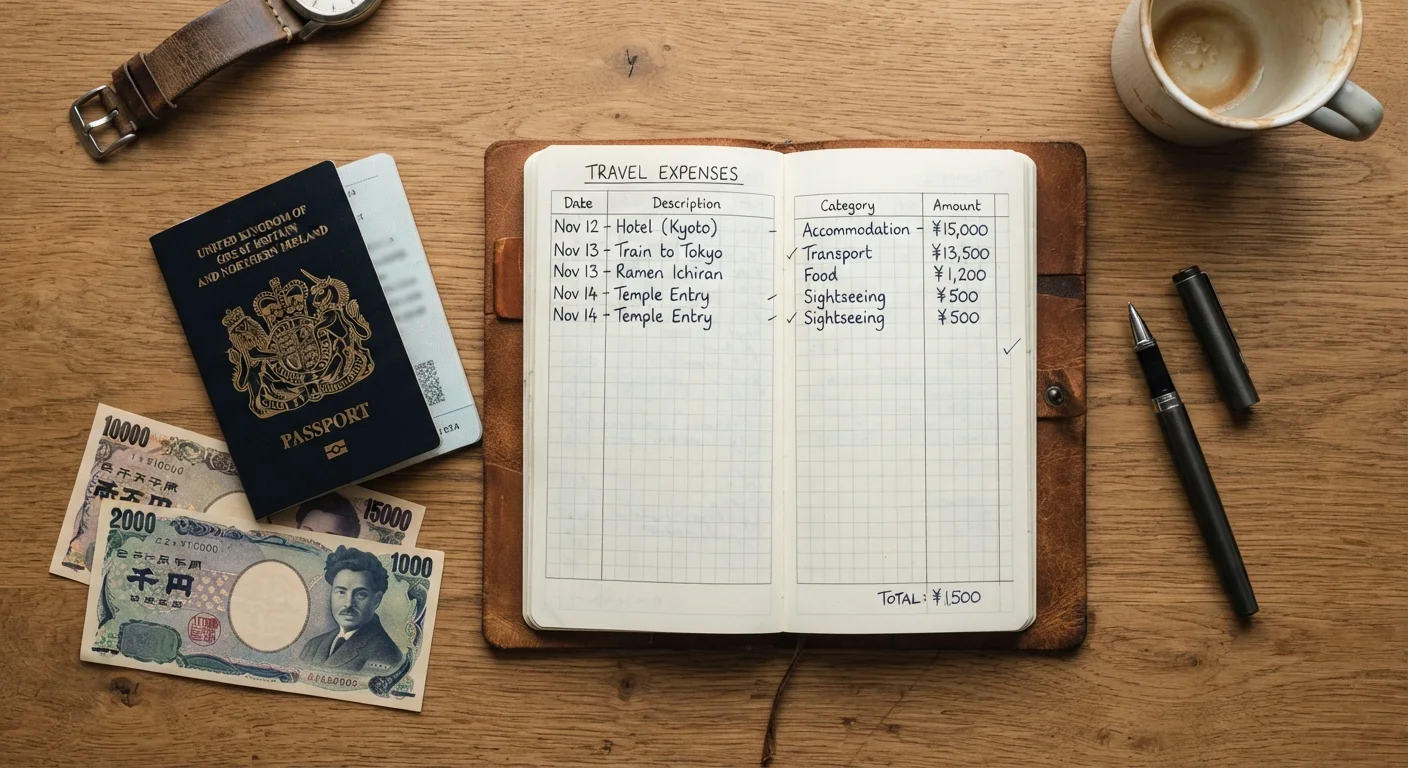 UNITED KINGDOM OF
GREAT BRITAIN
AND NORTHERN IRELAND
PASSPORT
10000
15000
2000
1000
千円
TRAVEL EXPENSES
Date Description Category Amount
Nov 12 - Hotel (Kyoto) - Accommodation - ¥15,000
Nov 13 - Train to Tokyo ✓ Transport ¥13,500
Nov 13 - Ramen Ichiran Food ¥1,200
Nov 14 - Temple Entry - Sightseeing ¥500
Nov 14 - Temple Entry - ✓ Sightseeing ¥500
✓
TOTAL: ¥1,500